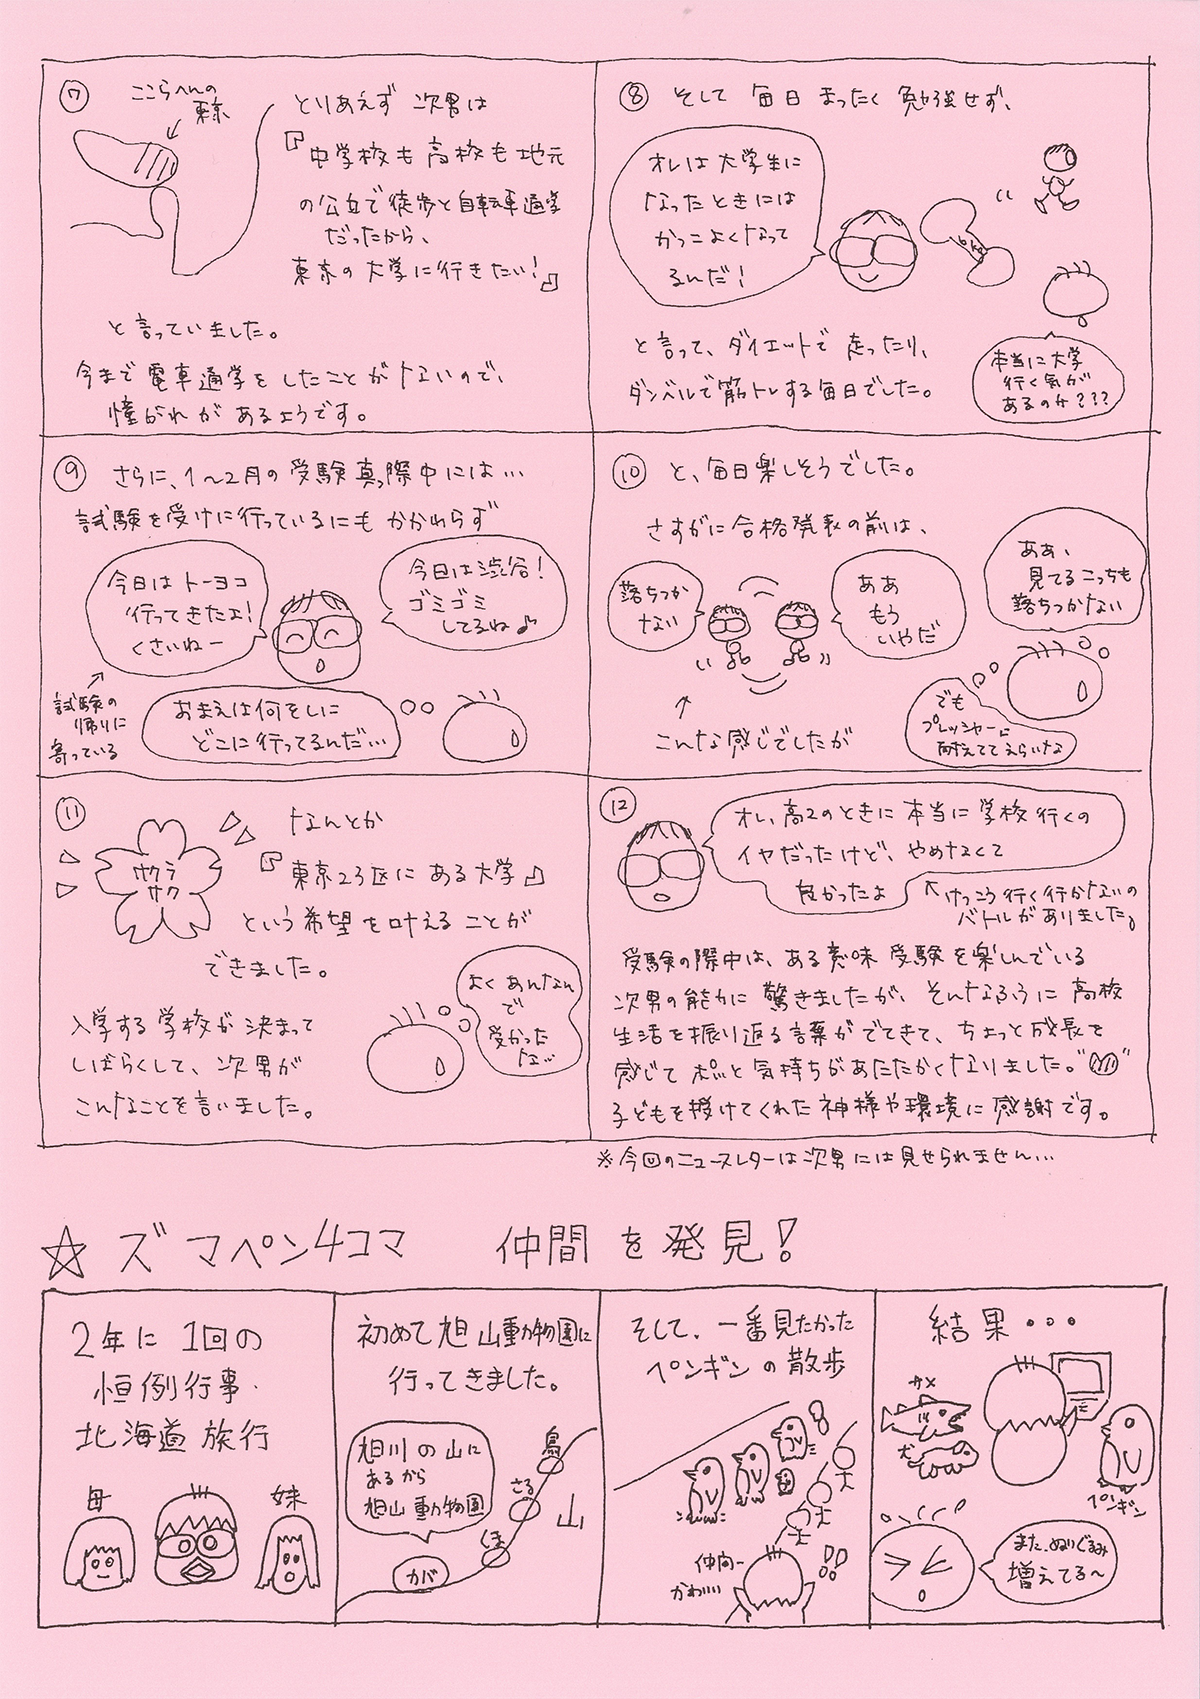 ⑦
ここらへんの
東京
とりあえず 次男は
『中学校も高校も地元
の公立で徒歩と自転車通学
だったから、
東京の大学に行きたい!』
と言っていました。
今まで電車通学をしたことがないので、
憧れがあるようです。
⑧ そして 毎日 まったく 勉強せず、
オレは大学生に
なったときには
かっこよくなって
るんだ!
と言って、ダイエットで 走ったり、
ダンベルで筋トレする毎日でした。
本当に大学
行く気が
あるのか???
⑨ さらに、1〜2月の受験真っ際中には…
試験を受けに行っているにもかかわらず
今日はトーヨコ
行ってきたよ!
くさいねー
今日は渋谷!
ゴミゴミ
してるね♪
試験の
帰りに
寄っている
おまえは何をしに
どこに行ってるんだ…
⑩ と、毎日楽しそうでした。
さすがに合格発表の前は、
落ちつか
ない
ああ
もう
いやだ
ああ、
見てるこっちも
落ちつかない
でも
プレッシャーに
耐えててえらいな
こんな感じでしたが
⑪
サクラ
サク
なんとか
『東京23区にある大学』
という希望を叶えることが
できました。
よくあんなん
で
受かった
な…
入学する学校が決まって
しばらくして、次男が
こんなことを言いました。
⑫
オレ、高2のときに本当に学校行くの
イヤだったけど、やめなくて
良かったよ
けっこう行く行かないの
バトルがありました。
受験の際中は、ある意味 受験を楽しんでいる
次男の能力に驚きましたが、そんなふうに高校
生活を振り返る言葉がでてきて、ちょっと成長を
感じてポッと気持ちがあたたかくなりました。
子どもを授けてくれた神様や環境に感謝です。
※今回のニュースレターは次男には見せられません…
☆ズマペン4コマ 仲間を発見!
2年に1回の
恒例行事・
北海道旅行
母
妹
初めて旭山動物園に
行ってきました。
旭川の山に
あるから
旭山動物園
鳥
さる
山
くま
カバ
そして、一番見たかった
ペンギンの散歩
仲間ー
かわいい
結果・・・
サメ
犬
ペンギン
また、ぬいぐるみ
増えてる〜